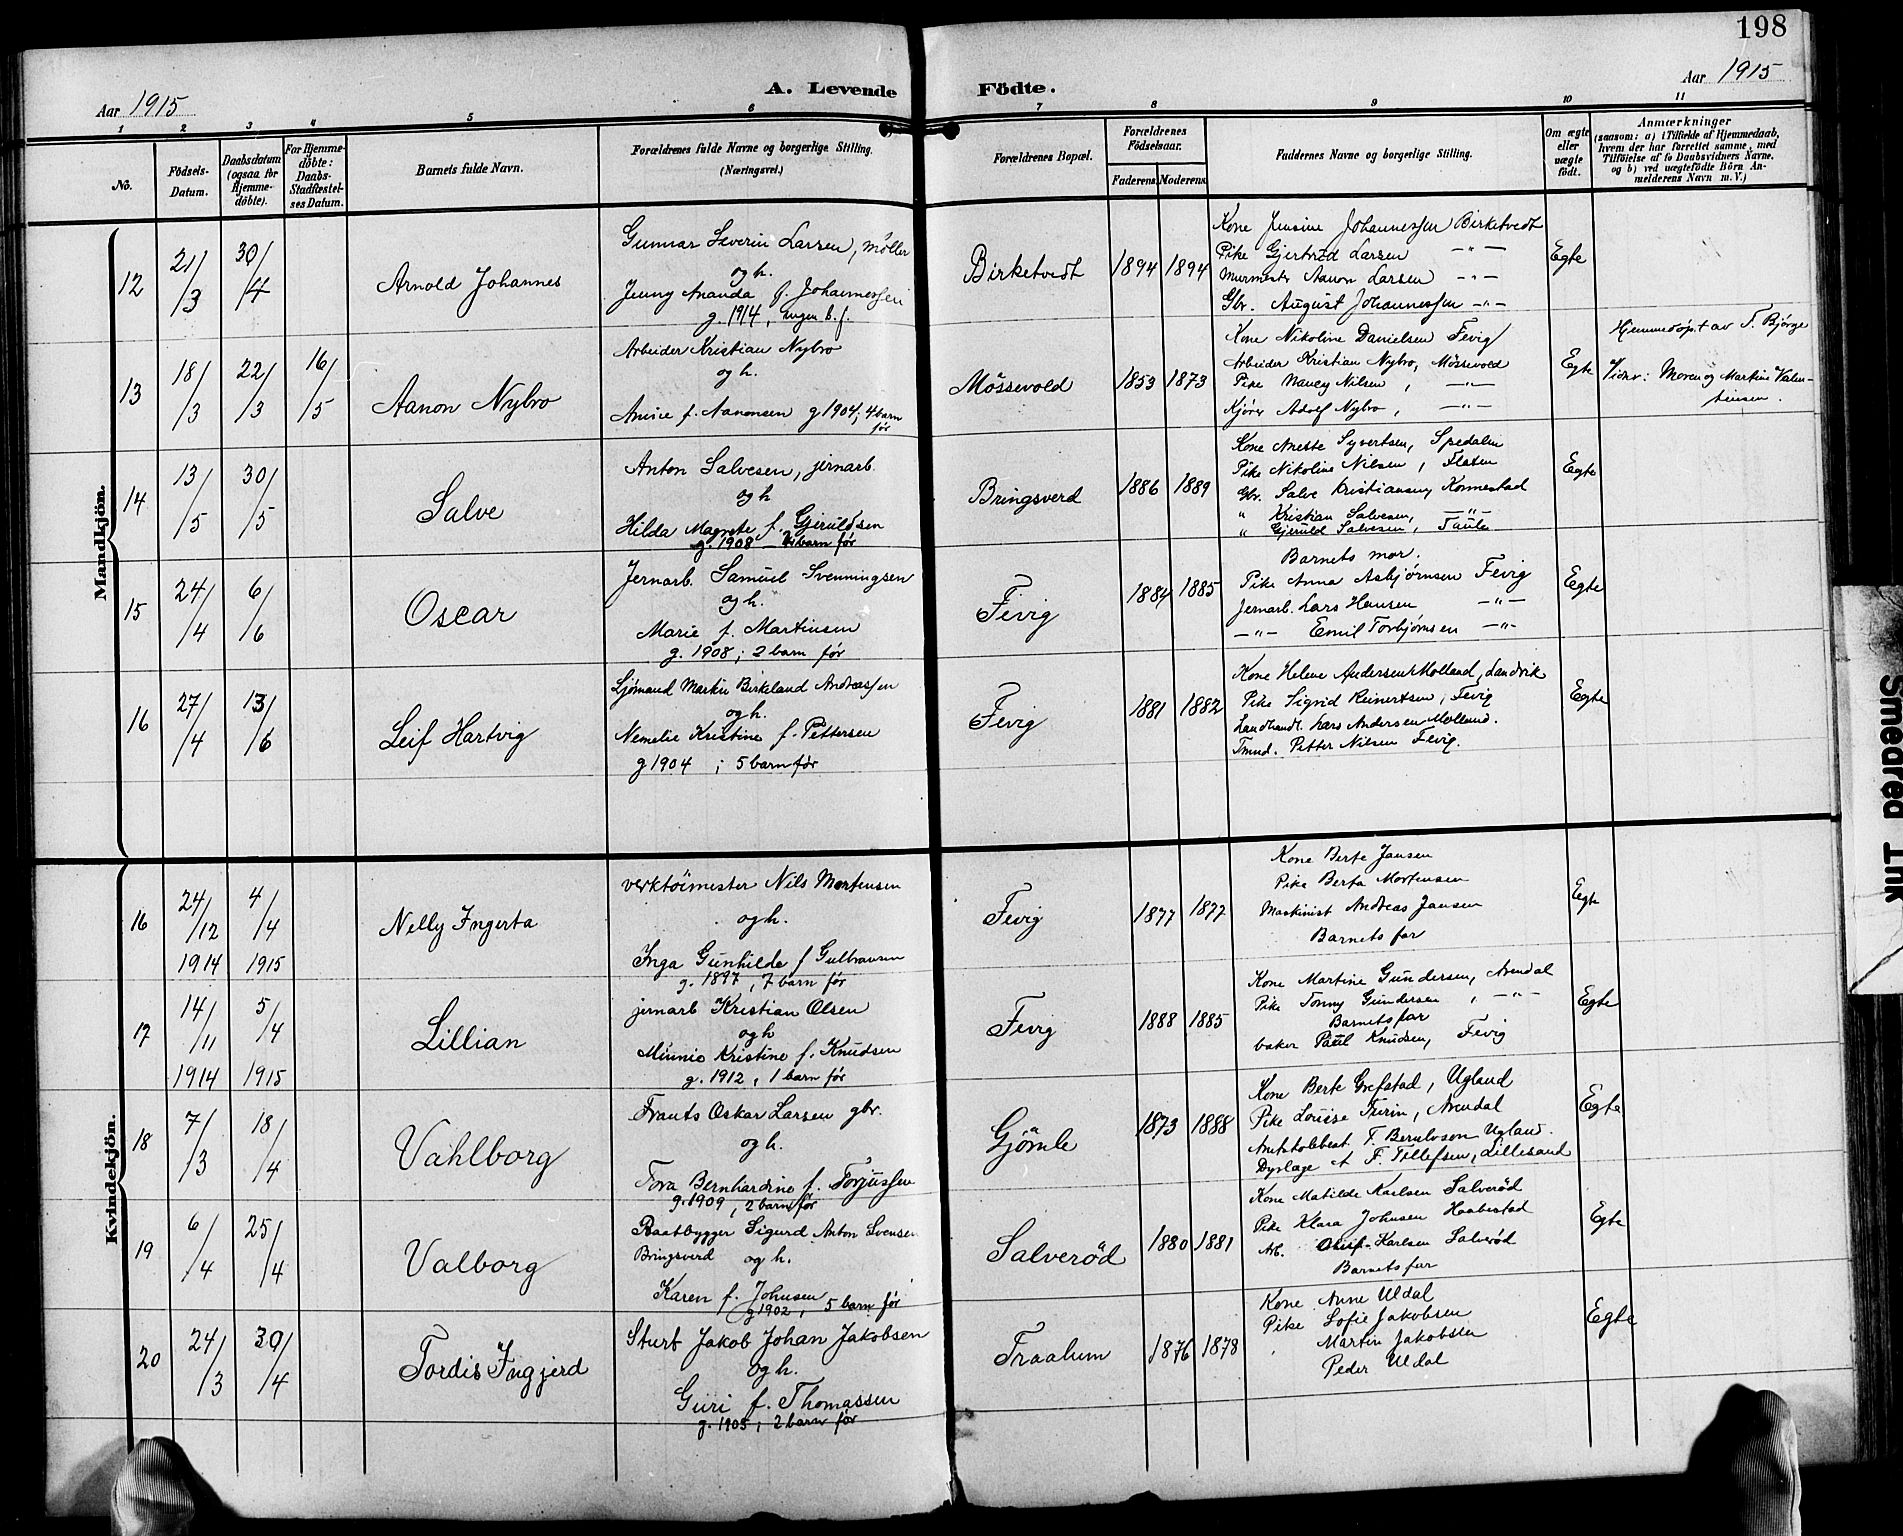 198
Aar 1915
A. Levende Födte.
Aar 1915
1 2 3 4 5 6 7 8 9 10 11
No.
Födsels-Datum.
Daabsdatum (ogsaa for Hjemme-döbte).
For Hjemme-döbte: Daabs-Stadfæstel-ses Datum.
Barnets fulde Navn.
Forældrenes fulde Navne og borgerlige Stilling. (Næringsvei.)
Forældrenes Bopæl.
Forældrenes Födselsaar.
Faderens Moderens
Faddernes Navne og borgerlige Stilling.
Om ægte eller uægte födt.
Anmærkninger
(saasom: a) i Tilfælde af Hjemmedaab, hvem der har forrettet samme, med Tilföielse af to Daabsvidners Navne, og b) ved uægtefödte Börn An-melderens Navn m. V.)
Mandkjön.
12 21/3 30/4 Arnold Johannes
Gunnar Severin Larsen, møller
og h.
Jenny Amanda f. Johannessen
g. 1914, ingen b. f.
Birketvedt 1894 1894
Kone Jensine Johannessen Birketvedt
Pike Gjertrud Larsen —"—
Murmester Aanon Larsen —"—
Gbr. August Johannessen —"—
Egte
13 18/3 22/3 16/5 Aanon Nybro
Arbeider Kristian Nybro
og h.
f. Aanonsen g 1904; 4 barn før
Mössevold 1853 1873
Kone Nikoline Danielsen Fevig
Arbeider Kristian Nybro, Mössevold
Pike Nancy Nilsen, —"—
Kjörer Adolf Nybro, —"—
Egte
Hjemmedöpt av T. Bjørge
Vidner: Moren og Martine Valen-
tinsen.
14 13/5 30/5 Salve
Anton Salvesen, jernarb.
og h
Hilda Magrete f. Gjeruldsen
g. 1908 — barn før
Bringsverd 1886 1889
Kone Anette Syvertsen, Spedalen
Pike Nikoline Nilsen, Flaten
Gbr. Salve Kristiansen, Konnestad
" Kristian Salvesen, —"—
" Gjeruld Salvesen,
Egte
15 24/4 6/6 Oscar
Jernarb. Samuel Svenningsen
og h.
Marie f. Martinsen
g. 1908; 2 barn før
Fevig 1884 1885
Barnets mor.
Pike Anna Asbjørnsen Fevig
Jernarb. Lars Hansen —"—
—"— Emil Torbjørnsen —"—
Egte
16 27/4 13/6 Leif Hartvig
Sjömand Martin Birkeland Andreassen
og h.
Nemelie Kristine f. Pettersen
g 1904; 5 barn før
Fevig 1881 1882
Kone Helene Andersen Molland, Landvik
Pike Sigrid Reinertsen, Fevig
Landhandl. Lars Andersen Molland.
Tmnd. Petter Nilsen Fevig.
Egte
Kvindekjön.
16 24/12 1914 4/4 1915 Nelly Ingerta
verktöimester Nils Mortensen
og h.
Inga Gunhilde f Gulbransen
g. 1897, 7 barn før
Fevig 1877 1877
Kone Berte Jansen
Pike Berta Mortensen
Maskinist Andreas Jansen
Barnets far
Egte
17 14/11 1914 5/4 1915 Lillian
jernarb Kristian Olsen
og h
Minnie Kristine f. Knudsen
g. 1912, 1 barn før
Fevig 1888 1885
Kone Martine Gundersen, Arendal
Pike Tonny Gundersen, —"—
Barnets far
baker Paul Knudsen, Fevig
Egte
18 7/3 18/4 Vahlborg
Frants Oskar Larsen gbr.
og h.
Tora Bernhardine f. Torjussen
g. 1909, 2 barn før
Gjömle 1873 1888
Kone Berte Grefstad, Ugland
Pike Louise Thrin, Arendal
T. Berulvson Ugland.
Dyrlæge A F. Tellefsen, Lillesand
Egte
19 6/4 25/4 Valborg
Baatbygger Sigurd Anton Svensen
Bringsverd og h.
Karen f. Johnsen
g 1902, 5 barn før
Salveröd 1880 1881
Kone Matilde Karlsen Salveröd
Pike Klara Johnsen Haabestad
Arb. Karlsen Salveröd
Barnets far
Egte
20 24/3 30/4 Tordis Ingjerd
Sturb Jakob Johan Jakobsen
og h.
Guri f. Thomassen
g. 1905; 2 barn før
Fraalum 1876 1878
Kone Anne Uldal
Pike Sofie Jakobsen
Martin Jakobsen
Peder Uldal
Egte
Smeared Ink